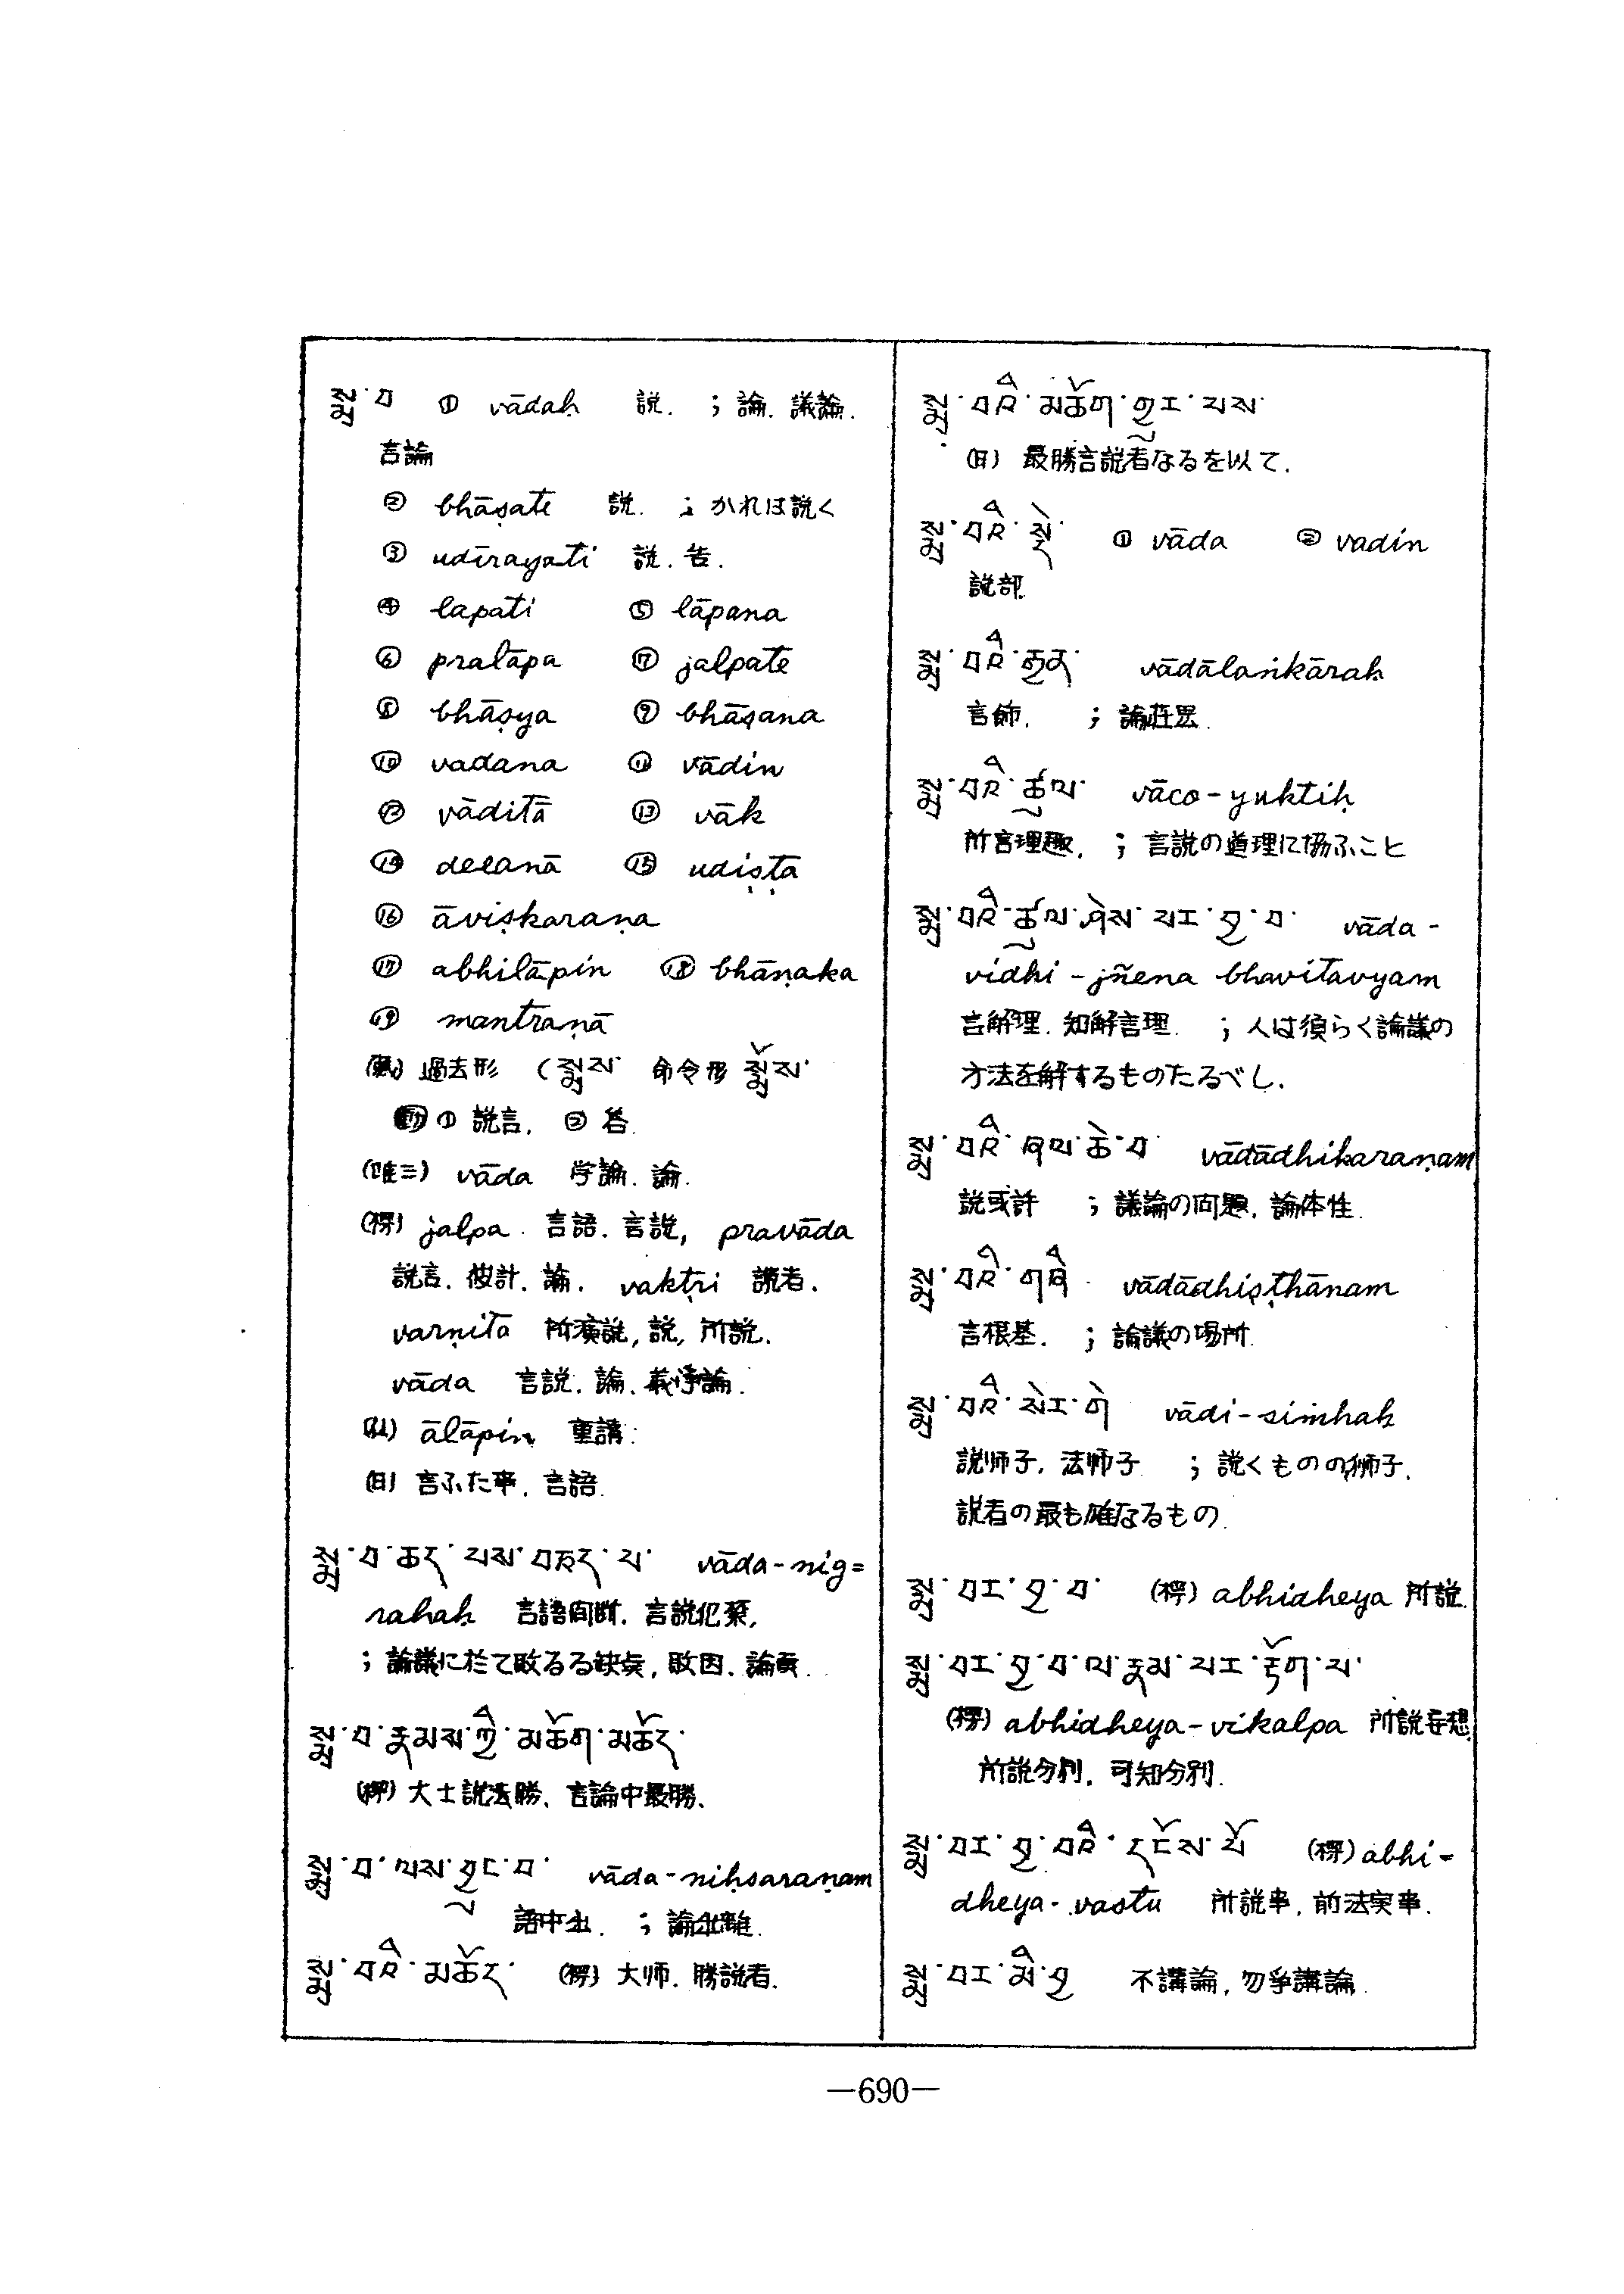 སྨྲ་བ ① vādaḥ 説. ; 論. 議論.
言論
② bhāṣate 説. ; かれは説く
③ udīrayati 説. 告.
④ lapati ⑤ lāpana
⑥ pralāpa ⑦ jalpate
⑧ bhāṣya ⑨ bhāṣana
⑩ vadana ⑪ vādin
⑫ vāditā ⑬ vāk
⑭ deśanā ⑮ udiṣṭa
⑯ āviṣkaraṇa
⑰ abhilāpin ⑱ bhāṇaka
⑲ mantraṇā
過去形 (སྨྲས་ 命令形 སྨྲོས་
① 説言. ② 答.
(唯三) vāda 学論. 論.
(楞) jalpa. 言語. 言説, pravāda
説言. 彼計. 論. vaktṛi 讃者.
varṇita 所演説, 説, 所説.
vāda 言説. 論. 義諍論.
ālāpin 重講.
(日) 言ふた事. 言語.
སྨྲ་བ་ཆད་པས་བཅད་པ་ vāda-nig=
rahaḥ 言語間断. 言説犯
; 論議に於て敗るる缺点, 敗因. 論
སྨྲ་བ་རྣམས་ཀྱི་མཆོག་མཆོད་
(楞) 大士説法勝、言論中最勝、
སྨྲ་བ་ལས་བྱུང་བ་ vāda-niḥsaraṇam
語中出. ; 論出離.
སྨྲ་བའི་མཆོད་ (楞) 大师. 勝説者.
སྨྲ་བའི་མཆོག་གྱུར་པས་
(日) 最勝言説者なるを以て.
སྨྲ་བའི་སྡེ་ ① vāda ② vadin
説部
སྨྲ་བའི་རྒྱན་ vādālaṅkāraḥ
言飾. ; 論荘嚴.
སྨྲ་བའི་ཚུལ་ vāco-yuktiḥ
所言理趣. ; 言説の道理に協ふこと
སྨྲ་བའི་ཚུལ་ཤེས་པར་བྱ་བ་ vāda-
vidhi-jñena bhavitavyam
言解理. 知解言理. ; 人は須らく論議の
方法を解するものたるべし.
སྨྲ་བའི་ཞལ་ཆེ་བ་ vādādhikaraṇam
説或許 ; 議論の问題. 論体性.
སྨྲ་བའི་གཞི་ vādādhiṣṭhānam
言根基. ; 論議の場所.
སྨྲ་བའི་སེང་གེ vādi-siṁhaḥ
説师子. 法师子 ; 説くものの獅子.
説者の最も雄なるもの.
སྨྲ་བར་བྱ་བ་ (楞) abhidheya 所説.
སྨྲ་བར་བྱ་བ་ལ་རྣམ་པར་རྟོག་པ་
(楞) abhidheya-vikalpa 所説妄想
所説分別. 可知分別.
སྨྲ་བར་བྱ་བའི་དངོས་པོ (楞) abhi-
dheya-vastu 所説事. 前法実事.
སྨྲ་བར་མི་བྱ 不講論. 勿爭講論.
—690—